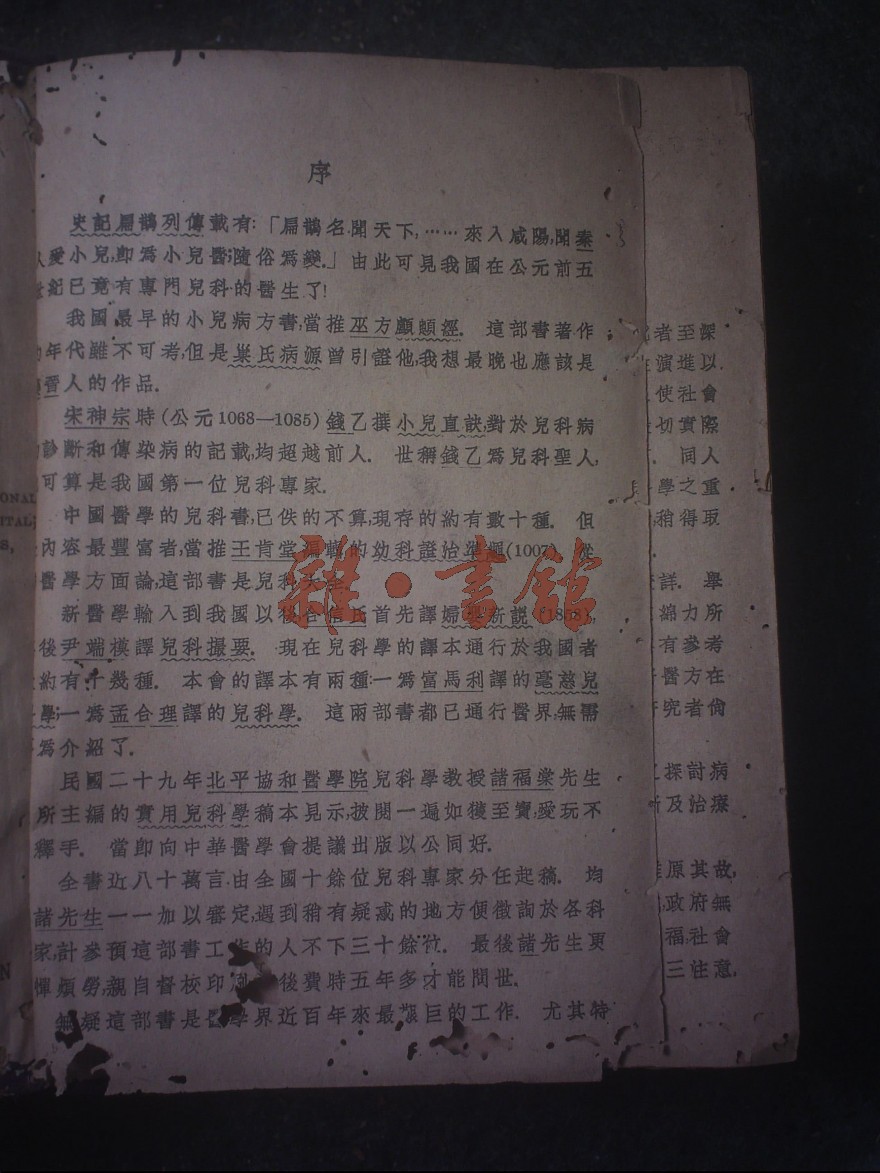 序
史記扁鵲列傳載有:「扁鵲名聞天下,……來入咸陽,聞秦
人愛小兒,卽爲小兒醫;隨俗爲變.」由此可見我國在公元前五
世紀已竟有專門兒科的醫生了!
我國最早的小兒病方書,當推巫方顱顖經. 這部書著作
年代雖不可考,但是巢氏病源曾引證他,我想最晚也應該是
晉人的作品.
宋神宗時(公元1068—1085)錢乙撰小兒直訣,對於兒科病
診斷和傳染病的記載,均超越前人. 世稱錢乙爲兒科聖人,
可算是我國第一位兒科專家.
中國醫學的兒科書,已佚的不算,現存的約有數十種. 但
內容最豐富者,當推王肯堂編輯的幼科證治準繩(1007) 從
醫學方面論,這部書是兒科大
新醫學輸入到我國以後合信氏首先譯婦嬰新説(1858),
後尹端模譯兒科撮要. 現在兒科學的譯本通行於我國者
約有十幾種. 本會的譯本有兩種:一爲富馬利譯的毫慈兒
學;一爲孟合理譯的兒科學. 這兩部書都已通行醫界,無需
爲介紹了.
民國二十九年北平協和醫學院兒科學教授諸福棠先生
所主編的實用兒科學稿本見示,披閱一遍如獲至寶,愛玩不
釋手. 當卽向中華醫學會提議出版以公同好.
全書近八十萬言,由全國十餘位兒科專家分任起稿. 均
諸先生一一加以審定,遇到稍有疑惑的地方便徵詢於各科
家,計參預這部書工作的人不下三十餘位. 最後諸先生更
憚煩勞,親自督校印刷 後費時五年多才能問世.
無疑這部書是醫學界近百年來最艱巨的工作. 尤其特
者至深
演進以
使社會
切實際
同人
學之重
稍得取
詳. 舉
綿力所
有參考
醫方在
究者倘
探討病
及治療
原其故,
政府無
福,社會
三注意,
ONAL
ITAL
S,
N
雜·書館